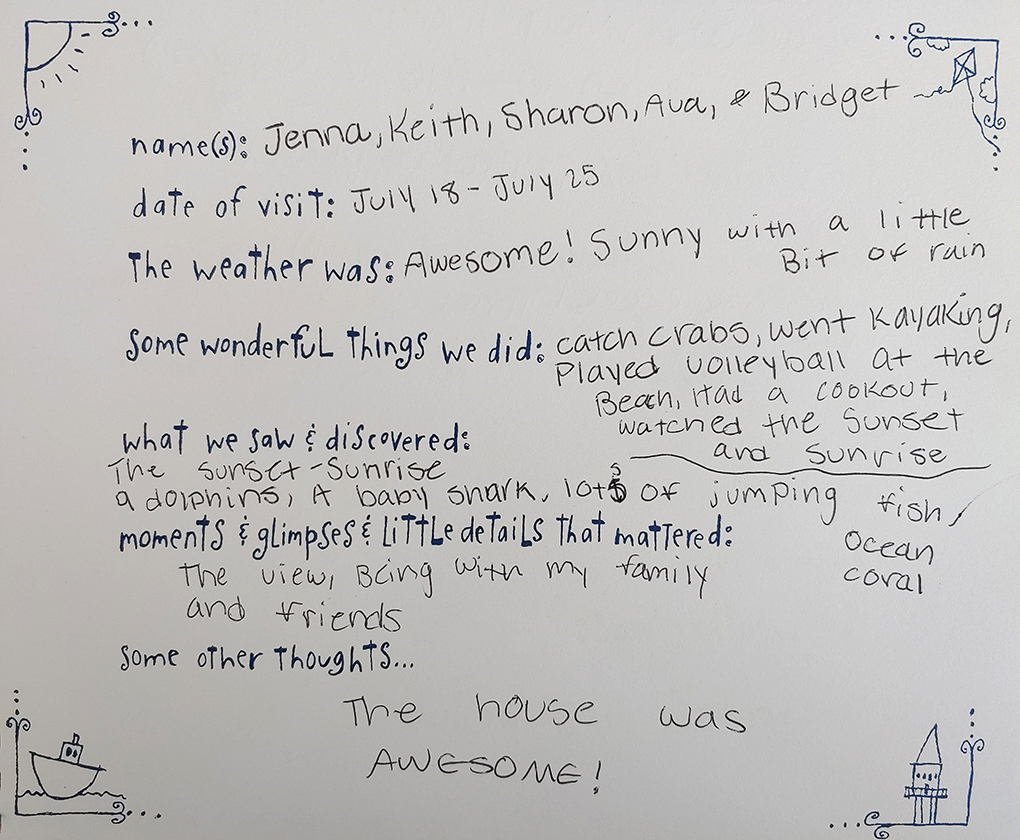 name(s): Jenna, Keith, Sharon, Ava, & Bridget
date of visit: July 18 - July 25
The weather was: Awesome! Sunny with a little
Bit of rain
some wonderful things we did: catch crabs, went kayaking,
Played volleyball at the
Beach, Had a cookout,
watched the sunset
and sunrise
what we saw & discovered:
The sunset - sunrise
a dolphins, A baby shark, lots of jumping fish,
ocean
coral
moments & glimpses & little details that mattered:
The view, Being with my family
and friends
some other thoughts...
The house was
AWESOME!